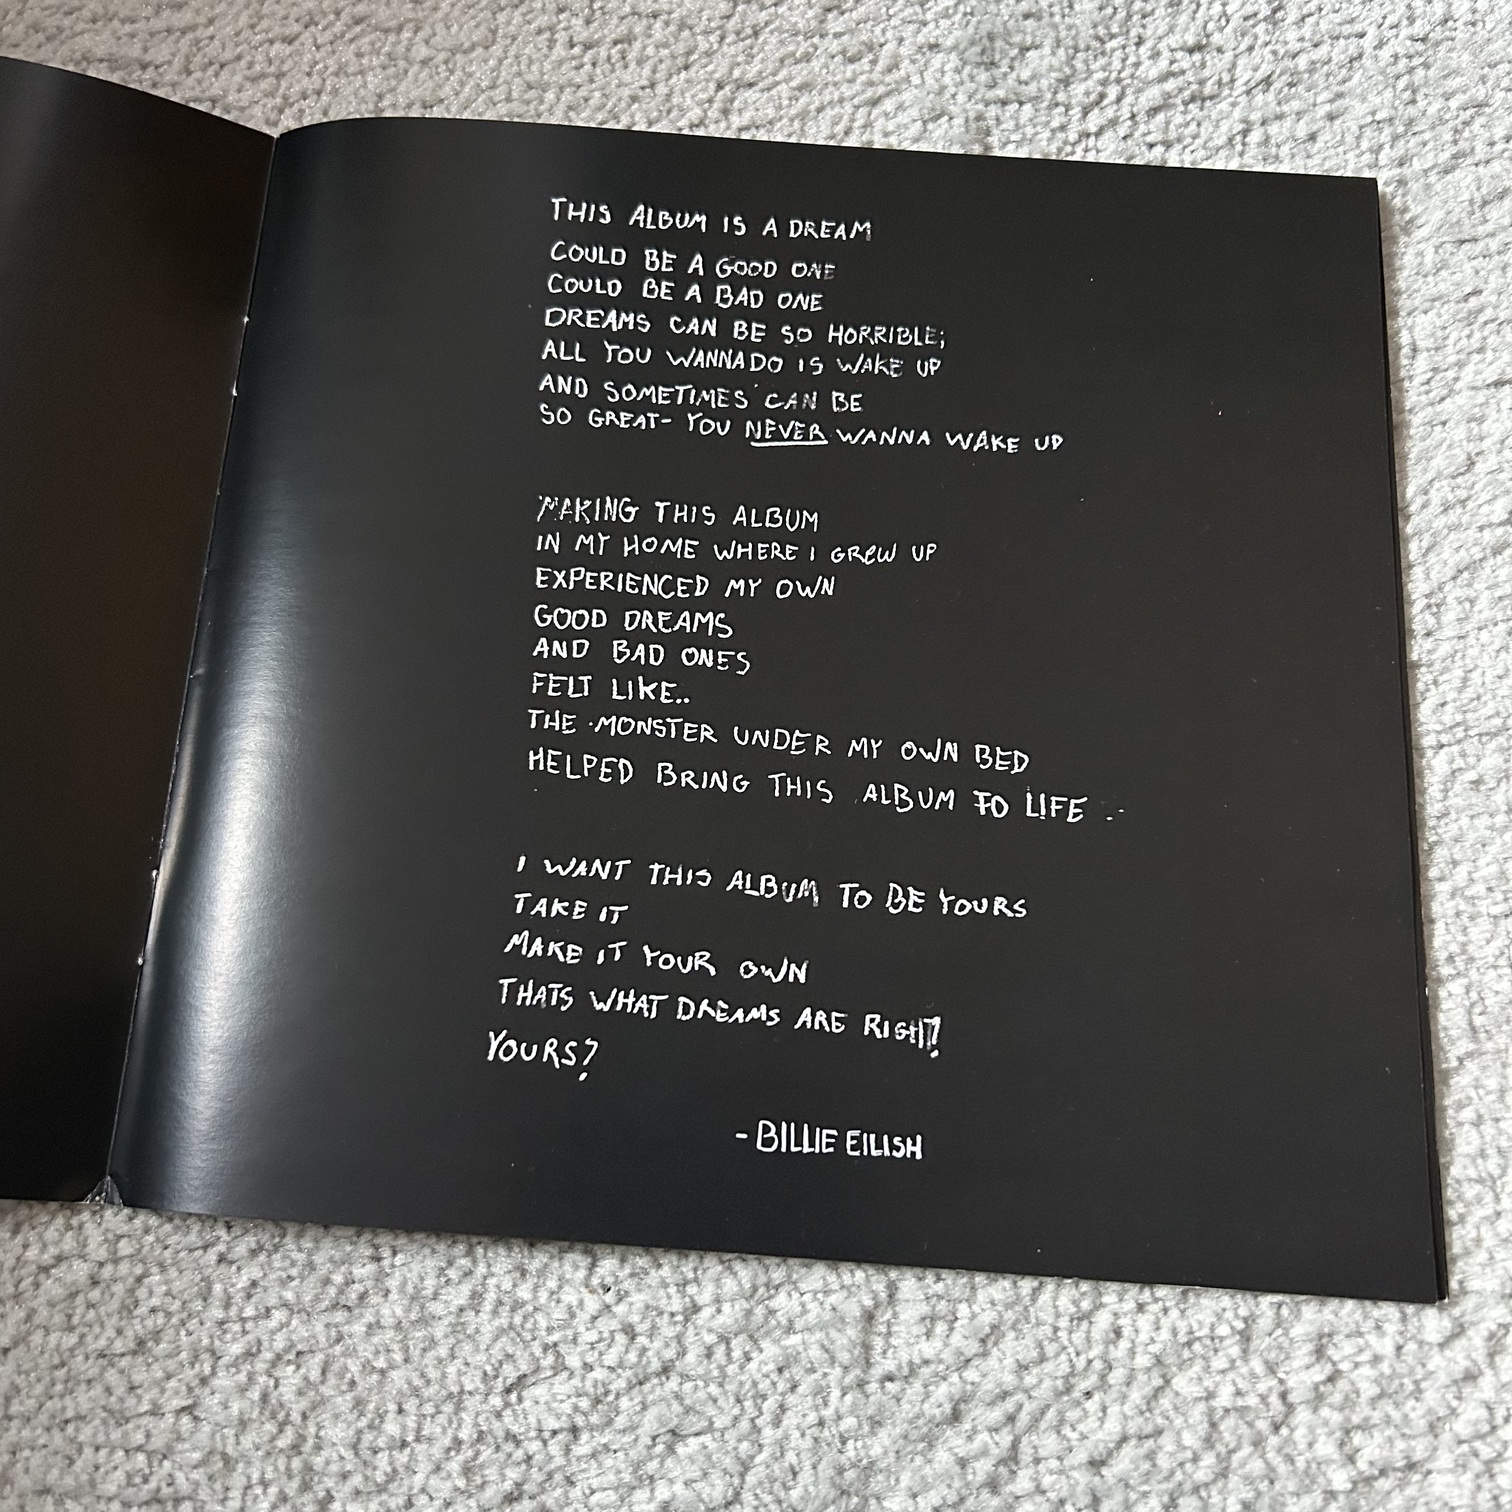 THIS ALBUM IS A DREAM
COULD BE A GOOD ONE
COULD BE A BAD ONE
DREAMS CAN BE SO HORRIBLE;
ALL YOU WANNA DO IS WAKE UP
AND SOMETIMES CAN BE
SO GREAT- YOU NEVER WANNA WAKE UP
MAKING THIS ALBUM
IN MY HOME WHERE I GREW UP
EXPERIENCED MY OWN
GOOD DREAMS
AND BAD ONES
FELT LIKE..
THE MONSTER UNDER MY OWN BED
HELPED BRING THIS ALBUM TO LIFE ..
I WANT THIS ALBUM TO BE YOURS
TAKE IT
MAKE IT YOUR OWN
THATS WHAT DREAMS ARE RIGHT?
YOURS?
- BILLIE EILISH